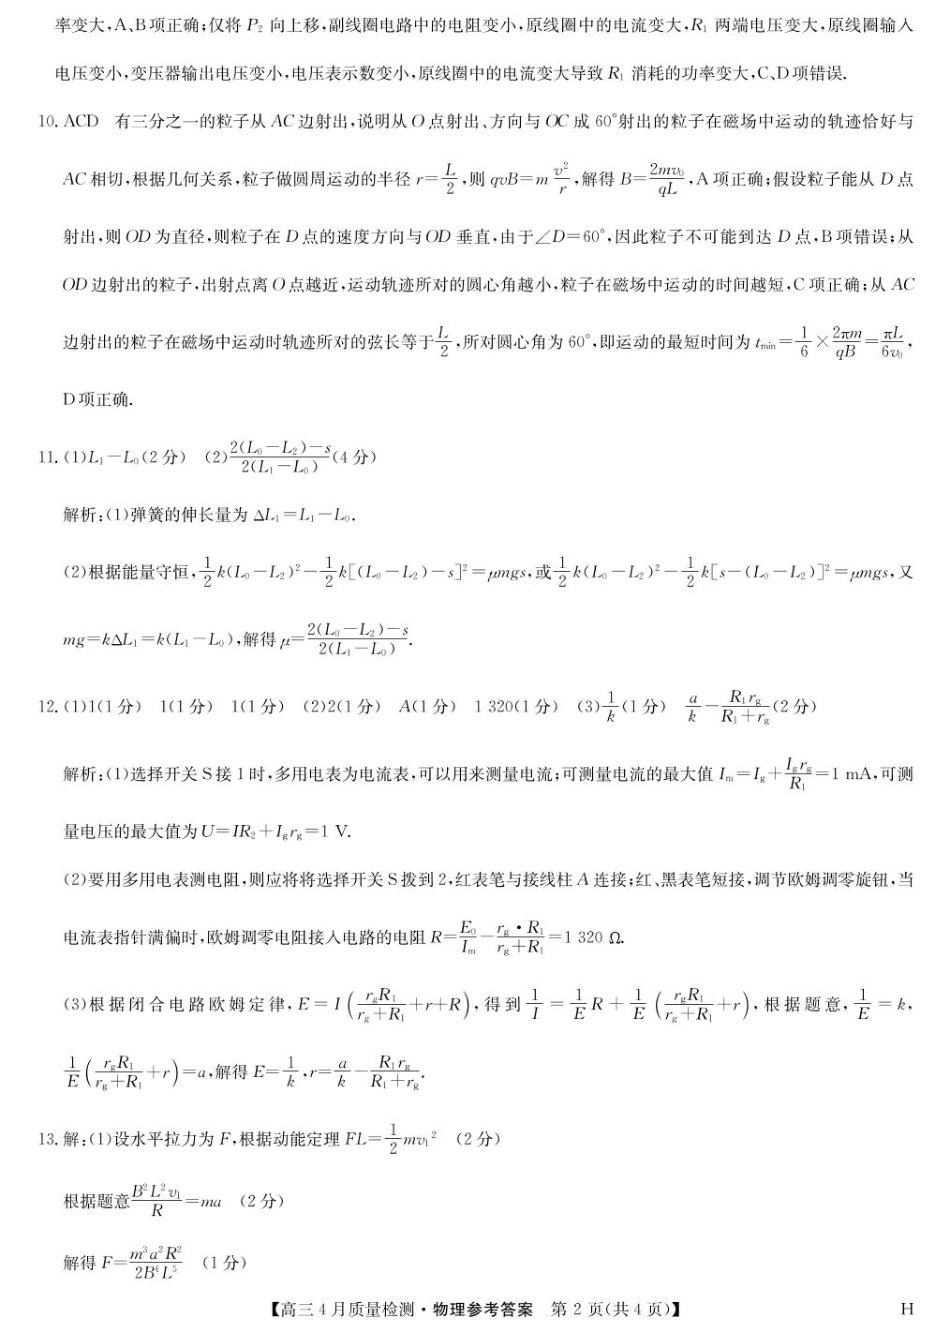 率变大,A、B项正确;仅将 P₂ 向上移,副线圈电路中的电阻变小,原线圈中的电流变大,R₁ 两端电压变大,原线圈输入
电压变小,变压器输出电压变小,电压表示数变小,原线圈中的电流变大导致 R₁ 消耗的功率变大,C、D项错误.
10. ACD 有三分之一的粒子从 AC 边射出,说明从 O 点射出、方向与 OC 成 60°射出的粒子在磁场中运动的轨迹恰好与
AC 相切,根据几何关系,粒子做圆周运动的半径 r=L/2,则 qvB=m v²/r,解得 B=2mv₀/qL,A 项正确;假设粒子能从 D 点
射出,则 OD 为直径,则粒子在 D 点的速度方向与 OD 垂直,由于∠D=60°,因此粒子不可能到达 D 点,B 项错误;从
OD 边射出的粒子,出射点离 O 点越近,运动轨迹所对的圆心角越小,粒子在磁场中运动的时间越短,C 项正确;从 AC
边射出的粒子在磁场中运动时轨迹所对的弦长等于 L/2,所对圆心角为 60°,即运动的最短时间为 t_min=1/6×2πm/qB=πL/6v₀,
D 项正确.
11. (1)L₁-L₀(2 分) (2)[2(L₀-L₂)-s]/[2(L₁-L₀)](4 分)
解析:(1)弹簧的伸长量为 ΔL₁=L₁-L₀.
(2)根据能量守恒,1/2 k(L₀-L₂)²-1/2 k[(L₀-L₂)-s]²=μmgs,或 1/2 k(L₀-L₂)²-1/2 k[s-(L₀-L₂)]²=μmgs,又
mg=kΔL₁=k(L₁-L₀),解得 μ=[2(L₀-L₂)-s]/[2(L₁-L₀)].
12. (1)1(1 分) 1(1 分) 1(1 分) (2)2(1 分) A(1 分) 1 320(1 分) (3)1/k(1 分) a/k-R₁r_g/(R₁+r_g)(2 分)
解析:(1)选择开关 S 接 1 时,多用电表为电流表,可以用来测量电流;可测量电流的最大值 I_m=I_g+I_g r_g/R₁=1 mA,可测
量电压的最大值为 U=IR₂+I_g r_g=1 V.
(2)要用多用电表测电阻,则应将将选择开关 S 拨到 2,红表笔与接线柱 A 连接;红、黑表笔短接,调节欧姆调零旋钮,当
电流表指针满偏时,欧姆调零电阻接入电路的电阻 R=E₀/I_m-r_g·R₁/(r_g+R₁)=1 320 Ω.
(3)根据闭合电路欧姆定律,E=I(r_gR₁/(r_g+R₁)+r+R),得到 1/I=1/E R+1/E(r_gR₁/(r_g+R₁)+r),根据题意,1/E=k,
1/E(r_gR₁/(r_g+R₁)+r)=a,解得 E=1/k,r=a/k-R₁r_g/(R₁+r_g).
13. 解:(1)设水平拉力为 F,根据动能定理 FL=1/2 mv₁² (2 分)
根据题意 B²L²v₁/R=ma (2 分)
解得 F=m³a²R²/2B⁴L⁵ (1 分)
【高三 4 月质量检测·物理参考答案 第 2 页(共 4 页)】 H